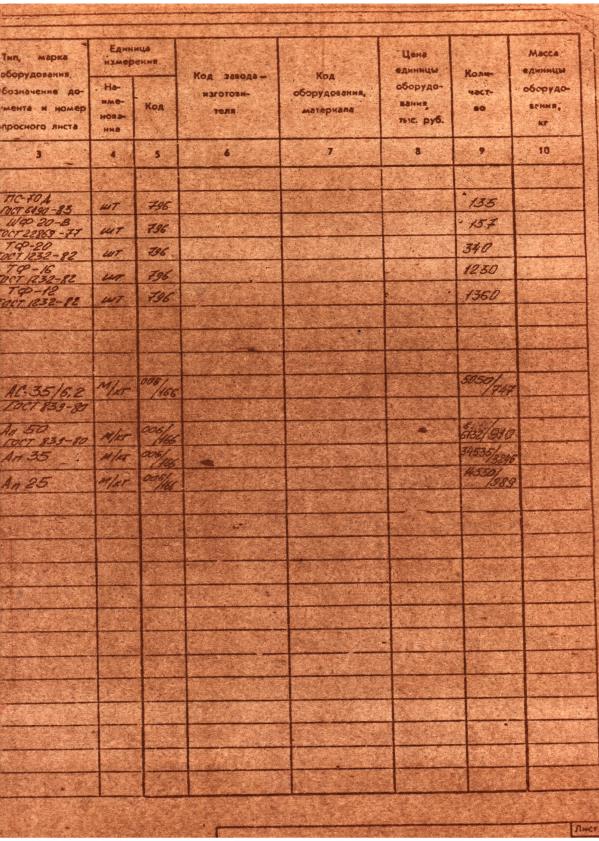 Тип, марка оборудования, обозначение до- мента и номер опросного листа
Единица измерения
На- име- нова- ние
Код
Код завода – изготови- теля
Код оборудования, материала
Цена единицы оборудо- вания, тыс. руб.
Коли- чест- во
Масса единицы оборудо- вания, кг
3 4 5 6 7 8 9 10
ПС-70Д
ГОСТ 6490-83 шт 796 135
ШФ 20-В
ГОСТ 22863-77 шт 796 157
ТФ-20
ГОСТ 1232-82 шт 796 340
ТФ-16
ГОСТ 1232-82 шт 796 1230
ТФ-12
ГОСТ 1232-82 шт 796 1360
АС-35/6.2 м/кг 006/166 5050/747
ГОСТ 839-80
Ап 50
ГОСТ 839-80 м/кг 006/166
Ап 35 м/кг 006/166
Ап 25 м/кг 006/166
Лист